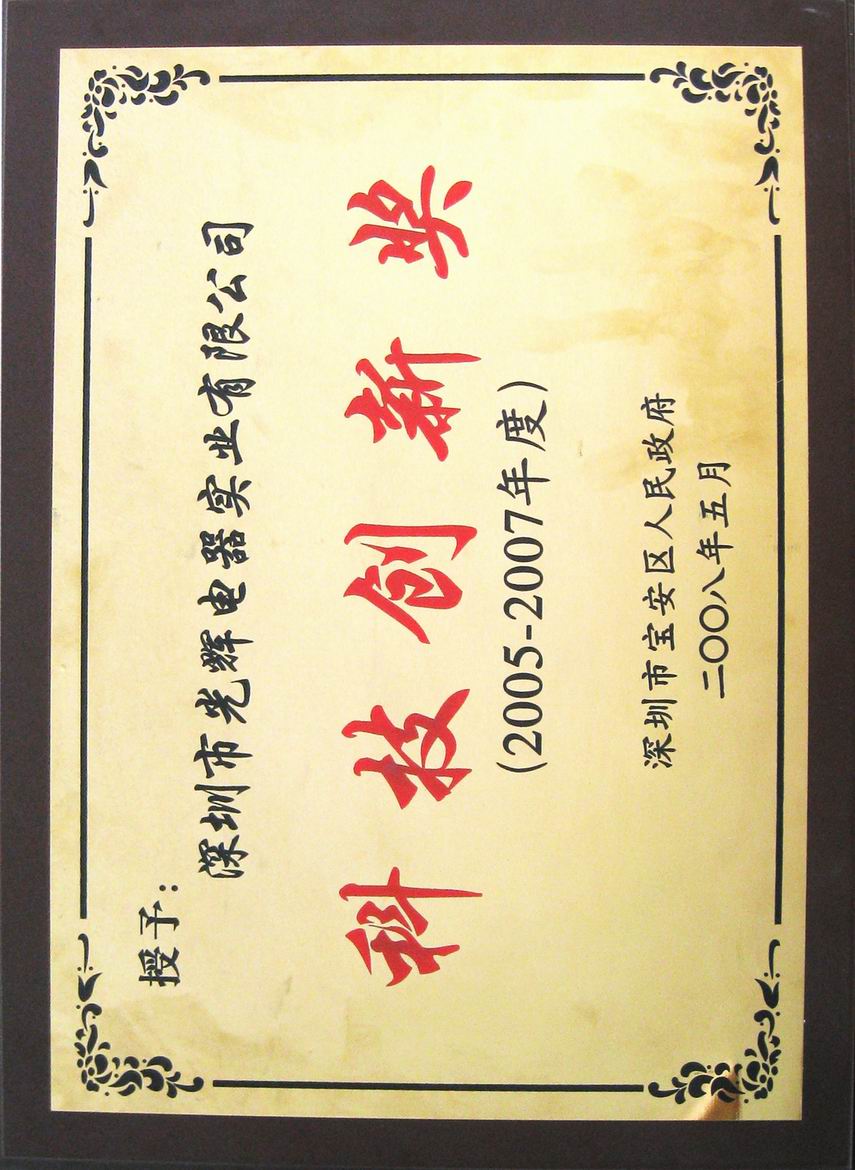 授予：
深圳市光辉电器实业有限公司
科技创新奖
(2005-2007年度)
深圳市宝安区人民政府
二〇〇八年五月